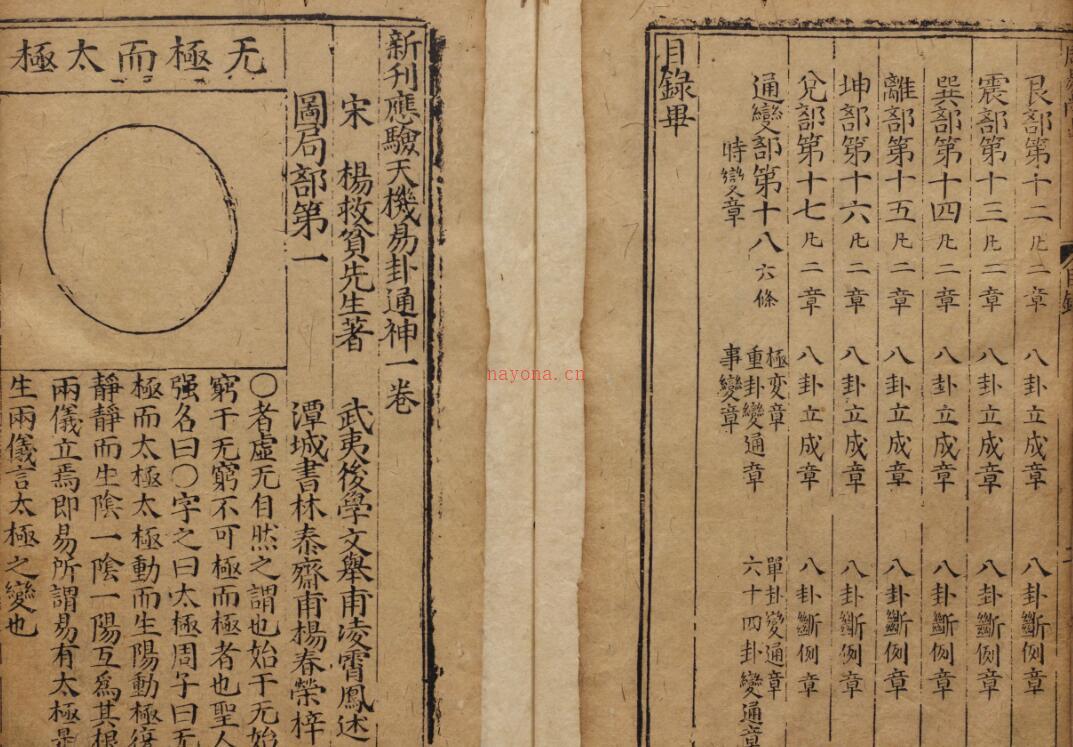 艮部第十二 凡二章 八卦立成章 八卦斷例章
震部第十三 凡二章 八卦立成章 八卦斷例章
巽部第十四 凡二章 八卦立成章 八卦斷例章
離部第十五 凡二章 八卦立成章 八卦斷例章
坤部第十六 凡二章 八卦立成章 八卦斷例章
兌部第十七 凡二章 八卦立成章 八卦斷例章
通變部第十八 六條 極变章 單卦變通章
重卦變通章 六十四卦變通章
時變章 事變章
目錄畢
目錄
nayona.cn
新刊應驗天機易卦通神一卷
宋 楊救貧先生著 武夷後學文舉甫淩霄鳳述
潭城書林泰齋甫楊春榮梓
圖局部第一
无極而太極
〇者虛无自然之謂也始于无始
窮于无窮不可極而極者也聖人
强名曰〇字之曰太極周子曰无
極而太極太極動而生陽動極復
靜靜而生陰一陰一陽互爲其根
兩儀立焉即易所謂易有太極是
生兩儀言太極之變也